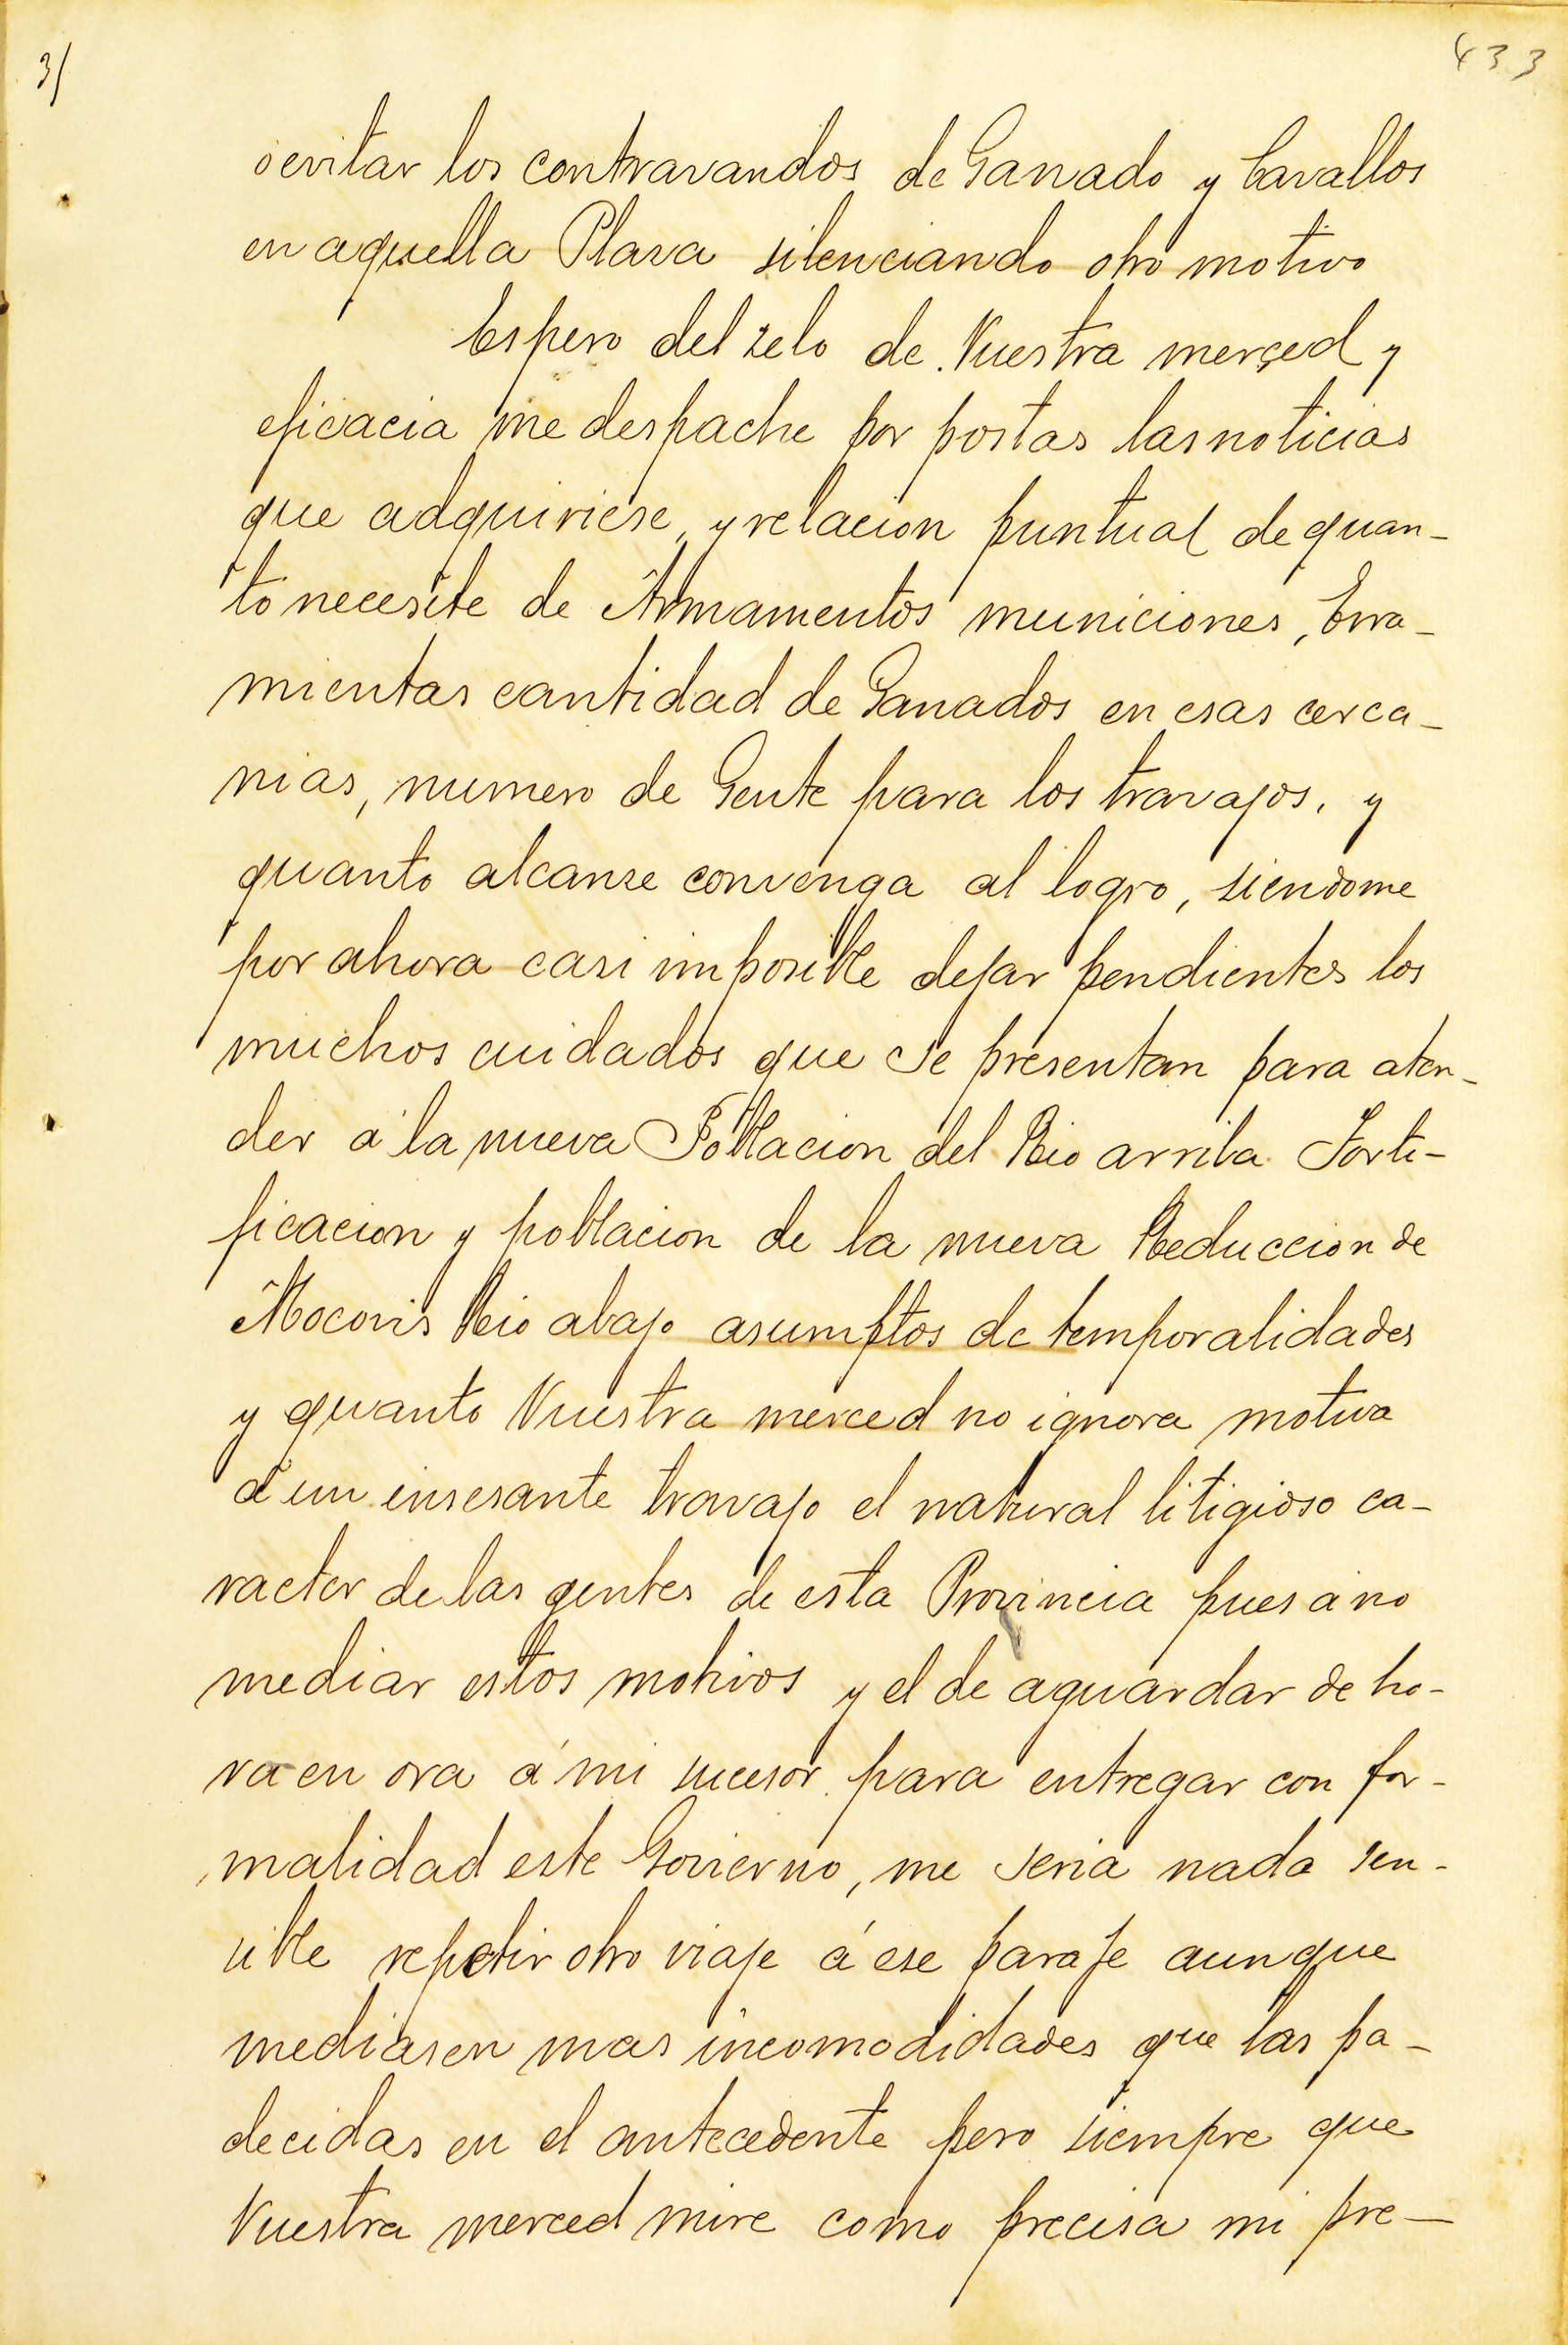 3/
433
o evitar los contravandos de Ganado y Cavallos
en aquella Plaza silenciando otro motivo
Espero del zelo de Vuestra merced y
eficacia me despache por postas las noticias
que adquiriese, y relacion puntual de quan-
to necesite de Armamentos municiones, Erra-
mientas cantidad de Ganados en esas cerca-
nias, numero de Gente para los travajos, y
quanto alcanse convenga al logro, siendome
por ahora casi imposible dejar pendientes los
muchos cuidados que se presentan para aten-
der á la nueva Poblacion del Rio arriba Forti-
ficacion y poblacion de la nueva Reduccion de
Mocovis Rio abajo asumptos de temporalidades
y quanto Vuestra merced no ignora motiva
á un insesante travajo el natural litigioso ca-
racter de las gentes de esta Provincia pues á no
mediar estos motivos y el de aguardar de ho-
ra en ora á mi sucesor para entregar con for-
malidad este Govierno, me seria nada sen-
sible repetir otro viaje á ese paraje aunque
mediasen mas incomodidades que las pa-
decidas en el antecedente pero siempre que
Vuestra merced mire como precisa mi pre-